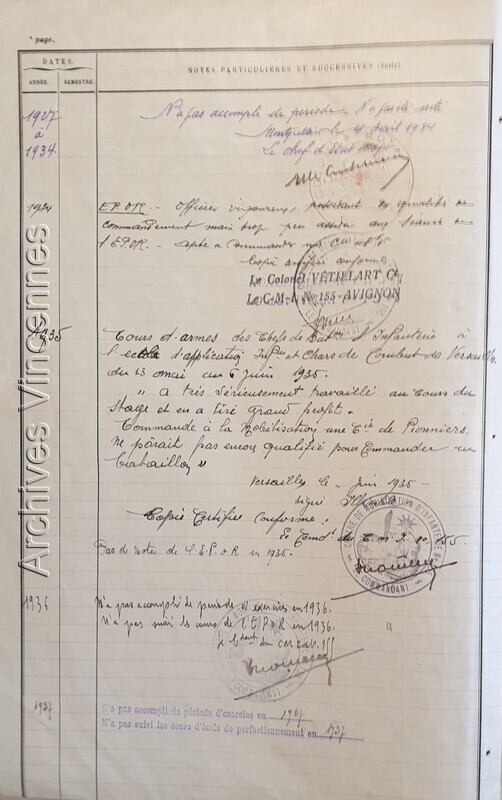 page.
DATES.
NOTES PARTICULIÈRES ET SUCCESSIVES (Suite).
ANNÉE.
SEMESTRE.
1927
à
1934
N'a pas accompli de période - N'a pas été noté
Montpellier le 4 Avril 1934
Le Chef d'Etat Major
1934
E.P.O.R. - Officier vigoureux, possédant des qualités de
commandement mais trop peu assidu aux séances de
l'E.P.O.R. - Apte à commander une Cie
Copie certifiée conforme
Le Colonel VÉTILLART Ct
Le C.M.I. No 155-AVIGNON
1935
Cours d'armes des Chefs de Baton d'Infanterie à
l'école d'application Infie et Chars de Combat de Versailles
du 13 mai au 5 juin 1935.
" a très sérieusement travaillé au Cours du
Stage et en a tiré grand profit.
Commande à la Mobilisation une Cie de Pionniers.
Ne paraît pas encore qualifié pour Commander un
bataillon "
Versailles le Juin 1935 -
Signé
Copie Certifiée Conforme :
Le Comdt du C. M. I. no 155.
Pas de Notes de l'E.P.O.R en 1935.
CENTRE DE MOBILISATION D'INFANTERIE
COMMANDANT
1936
N'a pas accompli de période d'exercices en 1936.
N'a pas suivi les cours de l'E.P.O.R en 1936.
1937
N'a pas accompli de période d'exercice en 1937
N'a pas suivi les cours d'école de perfectionnement en 1937
Archives Vincennes